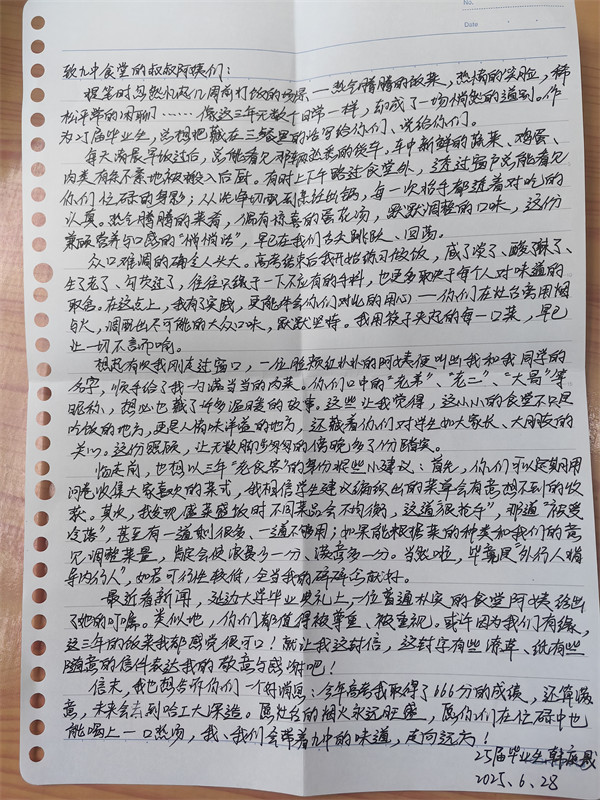 No.
Date
致九中食堂的叔叔阿姨们：
提笔时忽然忆及几周前打饭的场景——热气腾腾的饭菜，热情的笑脸，稀
松平常的闲聊……像这三年无数个日常一样，却成了一场悄然的道别。作
为25届毕业生，总想把藏在三餐里的话写给你们、说给你们。
每天清晨早饭过后，总能看见那辆熟悉的货车，车中新鲜的蔬菜、鸡蛋、
肉类有条不紊地被搬入后厨。有时上下午路过食堂外，透过窗户总能看见
你们忙碌的身影；从洗净切配到烹饪出锅，每一次抬手都透着对吃的
认真。热气腾腾的菜肴，偶有惊喜的蛋花汤，默默调整的口味，这份
兼顾营养与口感的“悄悄话”，早已在我们舌尖跳跃、回荡。
众口难调的确令人头大。高考结束后我开始练习做饭，咸了淡了、酸了辣了、
生了老了、勾芡过了，往往只缘于一下不应有的手料，也更多取决于每个人对味道的
取舍。在这点上，我有了实践，更能体会你们对此的用心——你们在灶台旁用烟
与火，调配出不可能的大众口味，默默坚持。我用筷子夹起的每一口菜，早已
让一切不言而喻。
想起有次我刚走过窗口，一位脸颊红扑扑的阿姨便叫出我和我同学的
名字，顺手给了我一勺满当当的肉菜。你们口中的“老弟”、“老二”、“大高”等
昵称，想必也藏了许多温暖的故事。这些让我觉得，这小小的食堂不只是
吃饭的地方，更是人情味洋溢的地方，还载着你们对学生如大家长、大朋友的
关心。这份照顾，让无数脚步匆匆的傍晚多了份踏实。
临走前，也想以三年“老食客”的身份提些小建议：首先，你们可以定期用
问卷收集大家喜欢的菜式，我相信学生建议编织出的菜单会有意想不到的收
获。其次，我发现盛菜盛饭时不同菜品会不均衡，这道“很抢手”，那道“很受
冷落”，甚至有一道剩很多、一道不够用；如果能根据菜的种类和我们的意
见调整菜量，肯定会使浪费少一分、满意多一分。当然啦，毕竟是“外行人指
导内行人”，如若可行性较低，全当我的碎碎念就好。
最近看新闻，延边大学毕业典礼上，一位普通朴实的食堂阿姨给出
了她的叮嘱。类似地，你们都值得被尊重、被重视。或许因为我们有缘，
这三年的饭菜我都感觉很可口！就让我这封信，这封字有些潦草、纸有些
随意的信件表达我的敬意与感谢吧！
信末，我也想告诉你们一个好消息：今年高考我取得了666分的成绩，还算满
意，未来会去到哈工大深造。愿灶台的烟火永远旺盛，愿你们在忙碌中也
能喝上一口热汤，我、我们会带着九中的味道，走向远方！
25届毕业生韩
2025.6.28